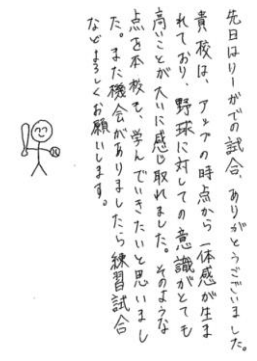 先日はリーグでの試合、ありがとうございました。
貴校は、アップの時点から一体感が生ま
れており、野球に対しての意識がとても
高いことが大いに感じ取れました。そのような
点を本校も、学んでいきたいと思いまし
た。また機会がありましたら練習試合
などよろしくお願いします。